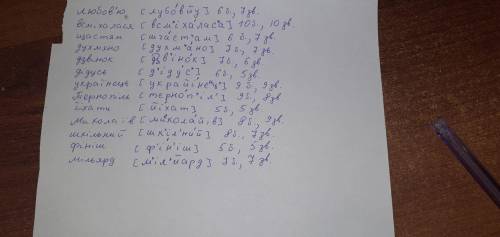 любов'ю [лубо́вйу] 6 б, 7 зв.
всміхалася [всм'іха́ласа] 10 б., 10 зв.
щастям [шча́ст'ам] 6 б, 7 зв.
духмяно [духм'а́но] 7 б, 7 зв.
дзвінок [дзв'іно́к] 7 б, 6 зв.
дідусь [д'іду́с'] 6 б, 5 зв.
українець [украйі́нец'] 9 б, 9 зв.
Тернопіль [терно́п'іл'] 9 б, 8 зв
їхати [йі́хат] 5 б, 5 зв.
Миколаїв [микола́йів] 8 б., 9 зв.
шкільний [шк'іл'ни́й] 8 б., 7 зв
фініш [ф'і́н'іш] 5 б, 5 зв.
мільярд [м'іл'йард] 7 б, 7 зв.